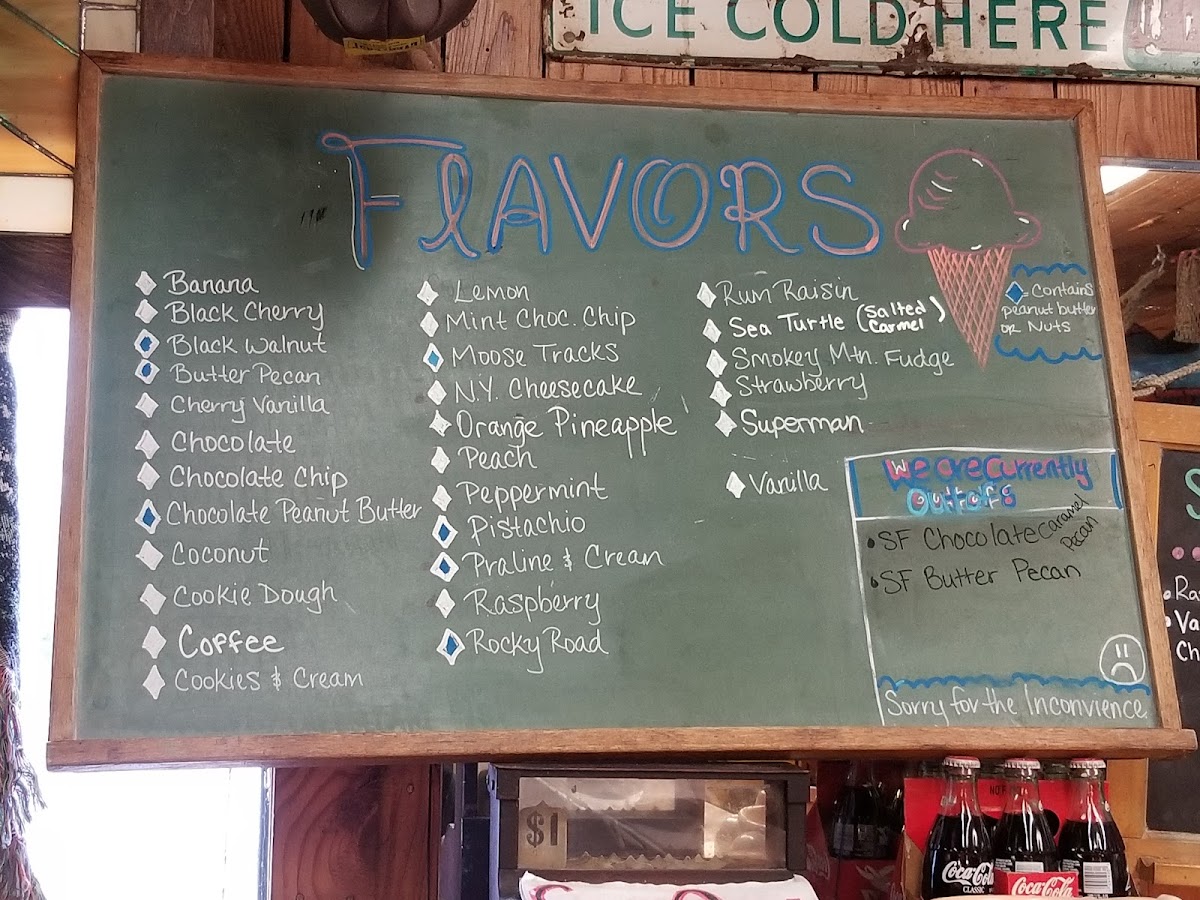 ICE COLD HERE
FLAVORS
Banana
Black Cherry
Black Walnut
Butter Pecan
Cherry Vanilla
Chocolate
Chocolate Chip
Chocolate Peanut Butter
Coconut
Cookie Dough
Coffee
Cookies & Cream
Lemon
Mint Choc. Chip
Moose Tracks
N.Y. Cheesecake
Orange Pineapple
Peach
Peppermint
Pistachio
Praline & Cream
Raspberry
Rocky Road
Rum Raisin
Sea Turtle (Salted
Carmel)
Smokey Mtn. Fudge
Strawberry
Superman
Vanilla
= Contains
peanut butter
or Nuts
We are Currently
Out of:
SF Chocolate Caramel
Pecan
SF Butter Pecan
Sorry for the Inconvience
$1
Coca-Cola
CLASSIC
Coca-Cola
Coca-Cola